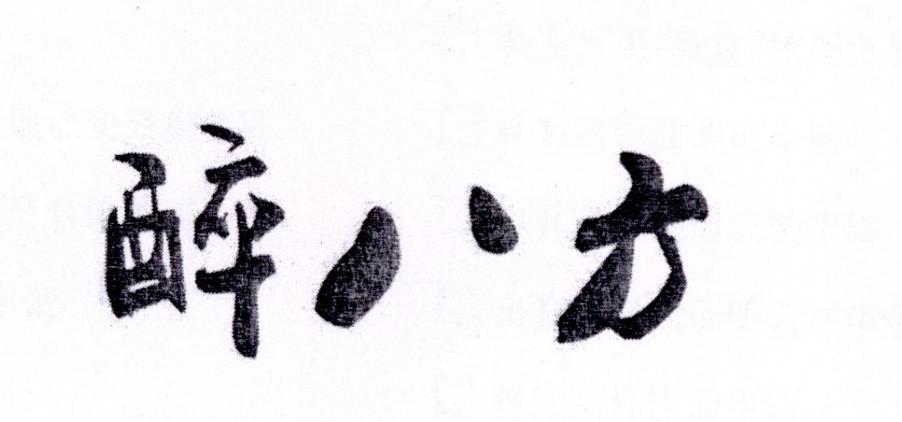 醉八方